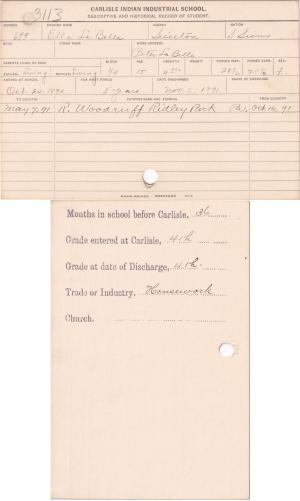 3113
CARLISLE INDIAN INDUSTRIAL SCHOOL.
DESCRIPTIVE AND HISTORICAL RECORD OF STUDENT.
NUMBER ENGLISH NAME AGENCY NATION
699 Ella La Belle Sisseton S. Sioux
BAND INDIAN NAME HOME ADDRESS
Peter La Belle
PARENTS LIVING OR DEAD BLOOD AGE HEIGHT WEIGHT FORCED INSP. FORCED EXPR. SEX
FATHER living MOTHER living 1/4 15 F.
ARRIVED AT SCHOOL FOR WHAT PERIOD DATE DISCHARGED
Oct. 20, 1890 5 years Nov. 6, 1891
TO COUNTRY PATRONS NAME AND ADDRESS FROM COUNTRY
May 7, 91 R. Woodruff Ridley Park Pa. Oct. 16, 91
Months in school before Carlisle, 36
Grade entered at Carlisle, 4th
Grade at date of Discharge, 4th.
Trade or Industry, Housework
Church.